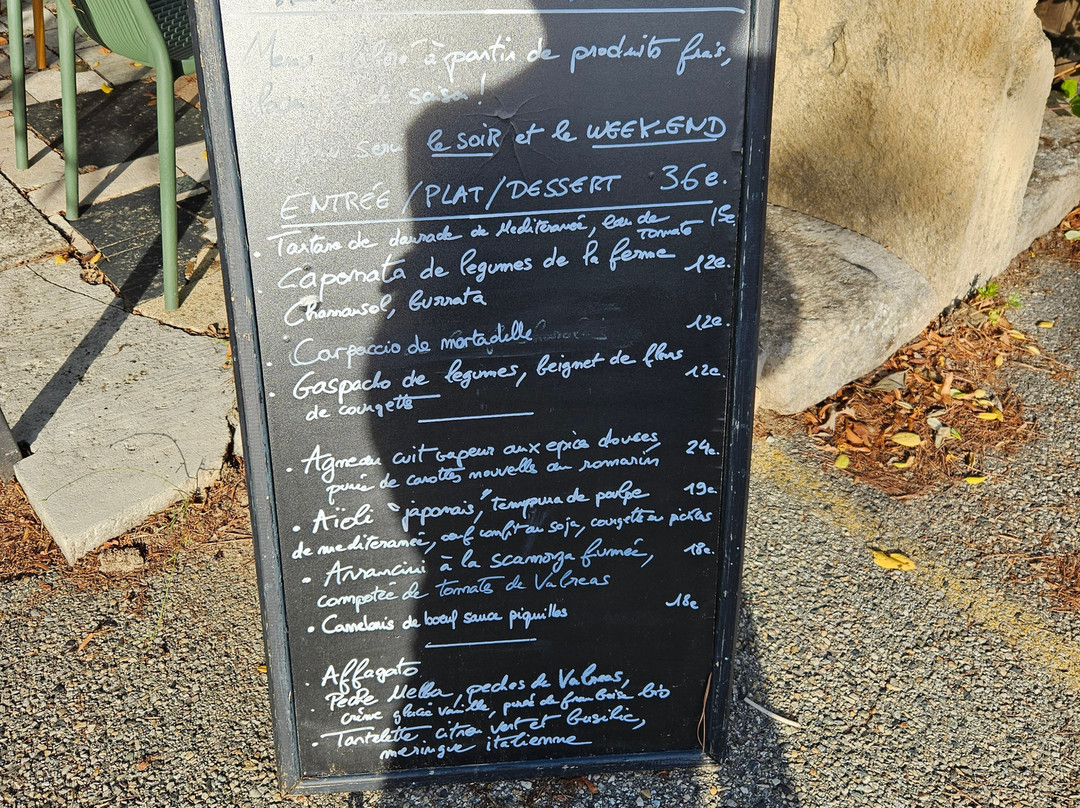 à partir de produits frais,
sasa!
le SOIR et le WEEK-END
ENTRÉE / PLAT / DESSERT 36e.
• Tartare de daurade de Mediteranée, eau de Tomate 15e
Caponata de legumes de la ferme 12e.
Chamansol, burrata
• Carpaccio de mortadelle 12e.
• Gaspacho de legumes, beignet de fleurs 12e.
de courgette
• Agneau cuit vapeur aux epice douces, 24e.
purée de carottes nouvelle au romarin
• Aïoli "japonais", tempura de poulpe 19e.
de mediteranée, oeuf confit au soja, courgette en pickles
• Arrancini à la scamorza fumée, 18e.
compotée de tomate de Valreas
• Cannelonis de boeuf sauce piquillos 18e
• Affogato
• Pêche Melba, peches de Valreas,
crème glacée vanille, purée de framboise bio
• Tartelette citron vert et basilic,
meringue italienne